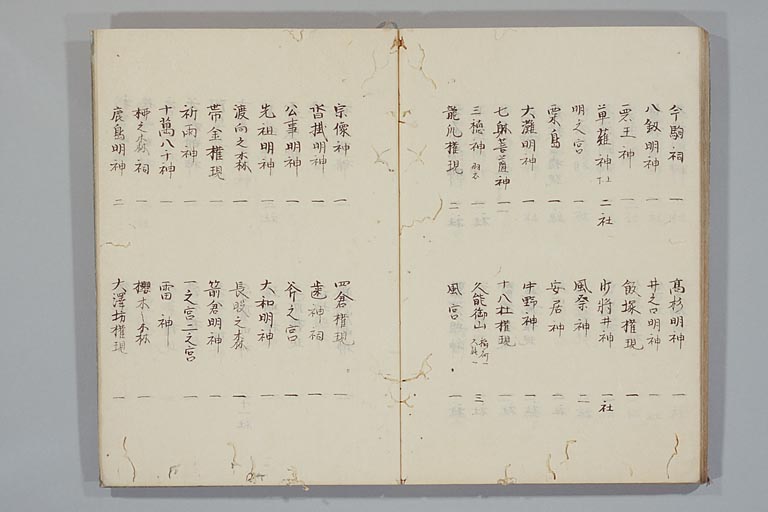 今駒祠 一
八釼明神 一
天王神 一
草薙神 仕 二社
明之宮 一
粟島 一
大灘明神 一
七躰菩薩神 一
三穂神 一
龍爪権現 二
高杉明神 一
井之口明神 一
飯塚権現 一
少将井神 一社
風祭神 二
安居神 一
中野神 一
十八社権現 一
久能御山 稲荷一 三
風宮 一
宗像神 一
沓掛明神 一
公事明神 一
先祖明神 一
渡向之森 一
帯金権現 一
祈雨神 一
十萬八千神 一
榊之森祠 一
鹿島明神 二
四倉権現 一
歯神祠 一
斧之宮 一
大和明神 一
長服之森 一
箭倉明神 一
一之宮二之宮 一
雷神 一
櫻木之森 一
大澤坊権現 一